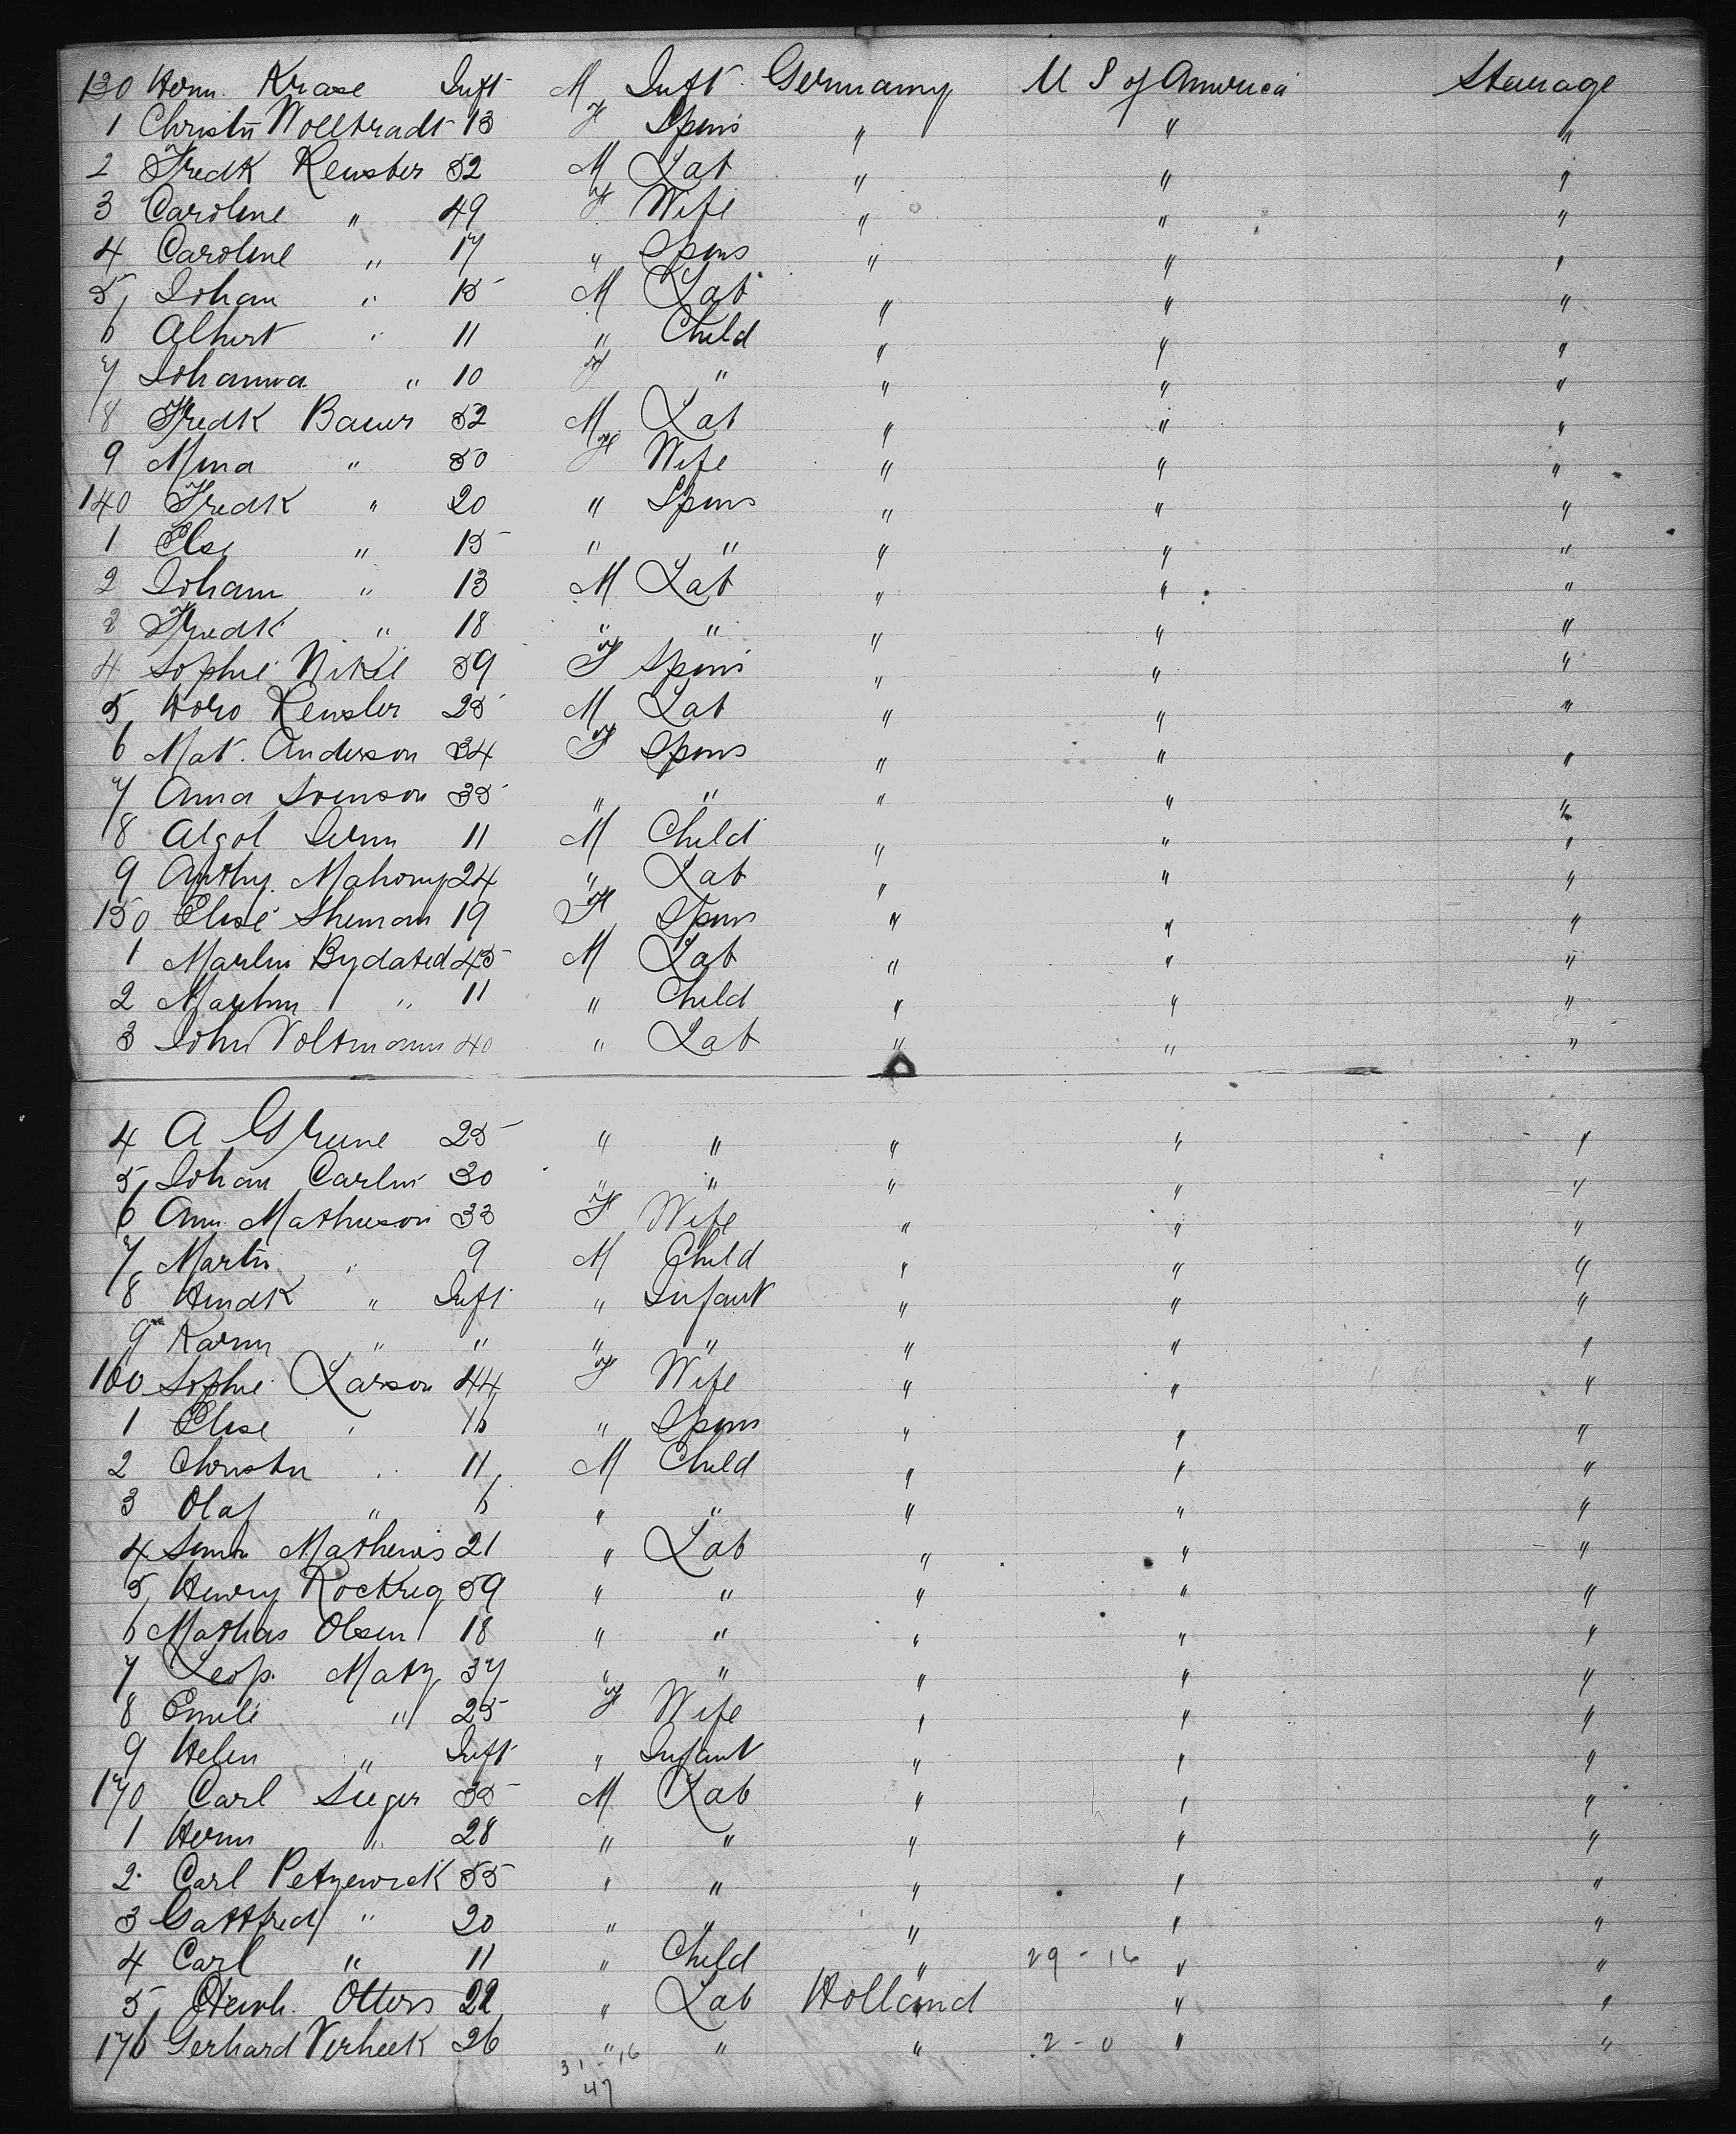 130 Herm. Krase Inft M Inft Germany U S of America Steerage
1 Christn Wolltradt 13 F Spins " " "
2 Fredk Renster 52 M Lab " " "
3 Caroline " 49 F Wife " " "
4 Caroline " 17 " Spins " " "
5 Johan " 15 M Lab " " "
6 Albert " 11 " Child " " "
7 Johanna " 10 F " " " "
8 Fredk Bauer 52 M Lab " " "
9 Mina " 50 F Wife " " "
140 Fredk " 20 " Spins " " "
1 Else " 15 " " " " "
2 Johann " 13 M Lab " " "
3 Fredk " 18 " " " " "
4 Sophie Nikel 59 F Spins " " "
5 Horo Rensler 25 M Lab " " "
6 Mat. Anderson 34 F Spins " " "
7 Anna Svenson 35 " " " " "
8 Algot 11 M Child " " "
9 Anthy. Mahony 24 " Lab " " "
150 Elise Sheman 19 F Spins " " "
1 Martin Bydated 45 M Lab " " "
2 Martin " 11 " Child " " "
3 John Voltmann 40 " Lab " " "
4 A Grune 25 " " " " "
5 Johan Carlin 30 " " " " "
6 Ann. Mathieson 33 F Wife " " "
7 Martin " 9 M Child " " "
8 Hendk " Inft " Infant " " "
9 Karin " " " " " " "
160 Sophie Larson 44 F Wife " " "
1 Elise " 16 " Spins " " "
2 Christn " 11 M Child " " "
3 Olaf " 6 " " " " "
4 Simon Mathews 21 " Lab " " "
5 Henry Rockreg 59 " " " " "
6 Mathias Olsen 18 " " " " "
7 Leop. Matz 37 " " " " "
8 Emile " 25 F Wife " " "
9 Helen " Inft " Infant " " "
170 Carl Sieger 35 M Lab " " "
1 Herm " 28 " " " " "
2 Carl Petzewick 55 " " " " "
3 Gottfried " 20 " " " " "
4 Carl " 11 " Child " 29 - 16 " "
5 Heinh. Otters 22 " Lab Holland " "
176 Gerhard Verheek 26 " " " 2 - 0 " "
31 - 16
47